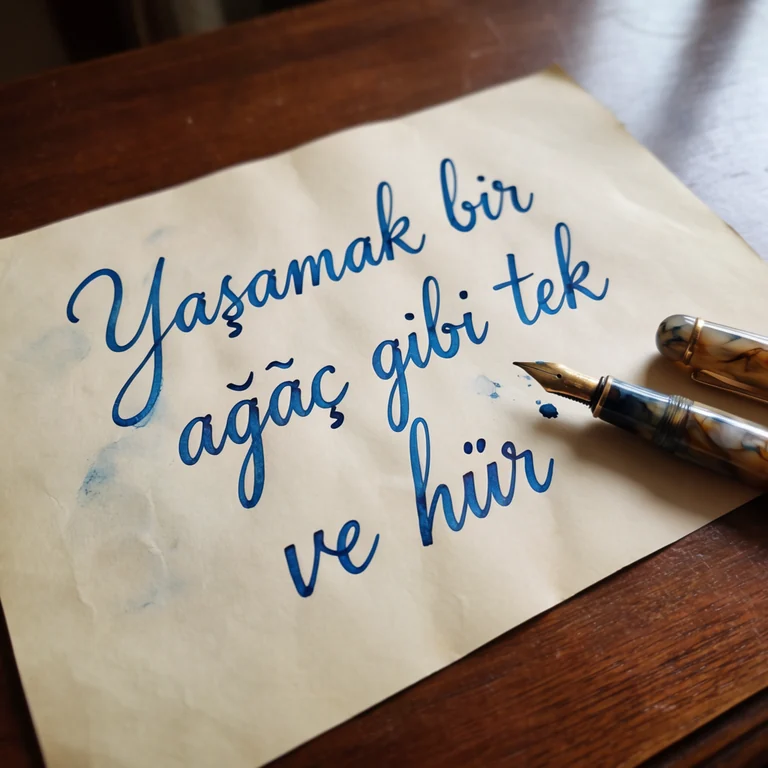 Yaşamak bir
ağãç gibi tek
ve hür